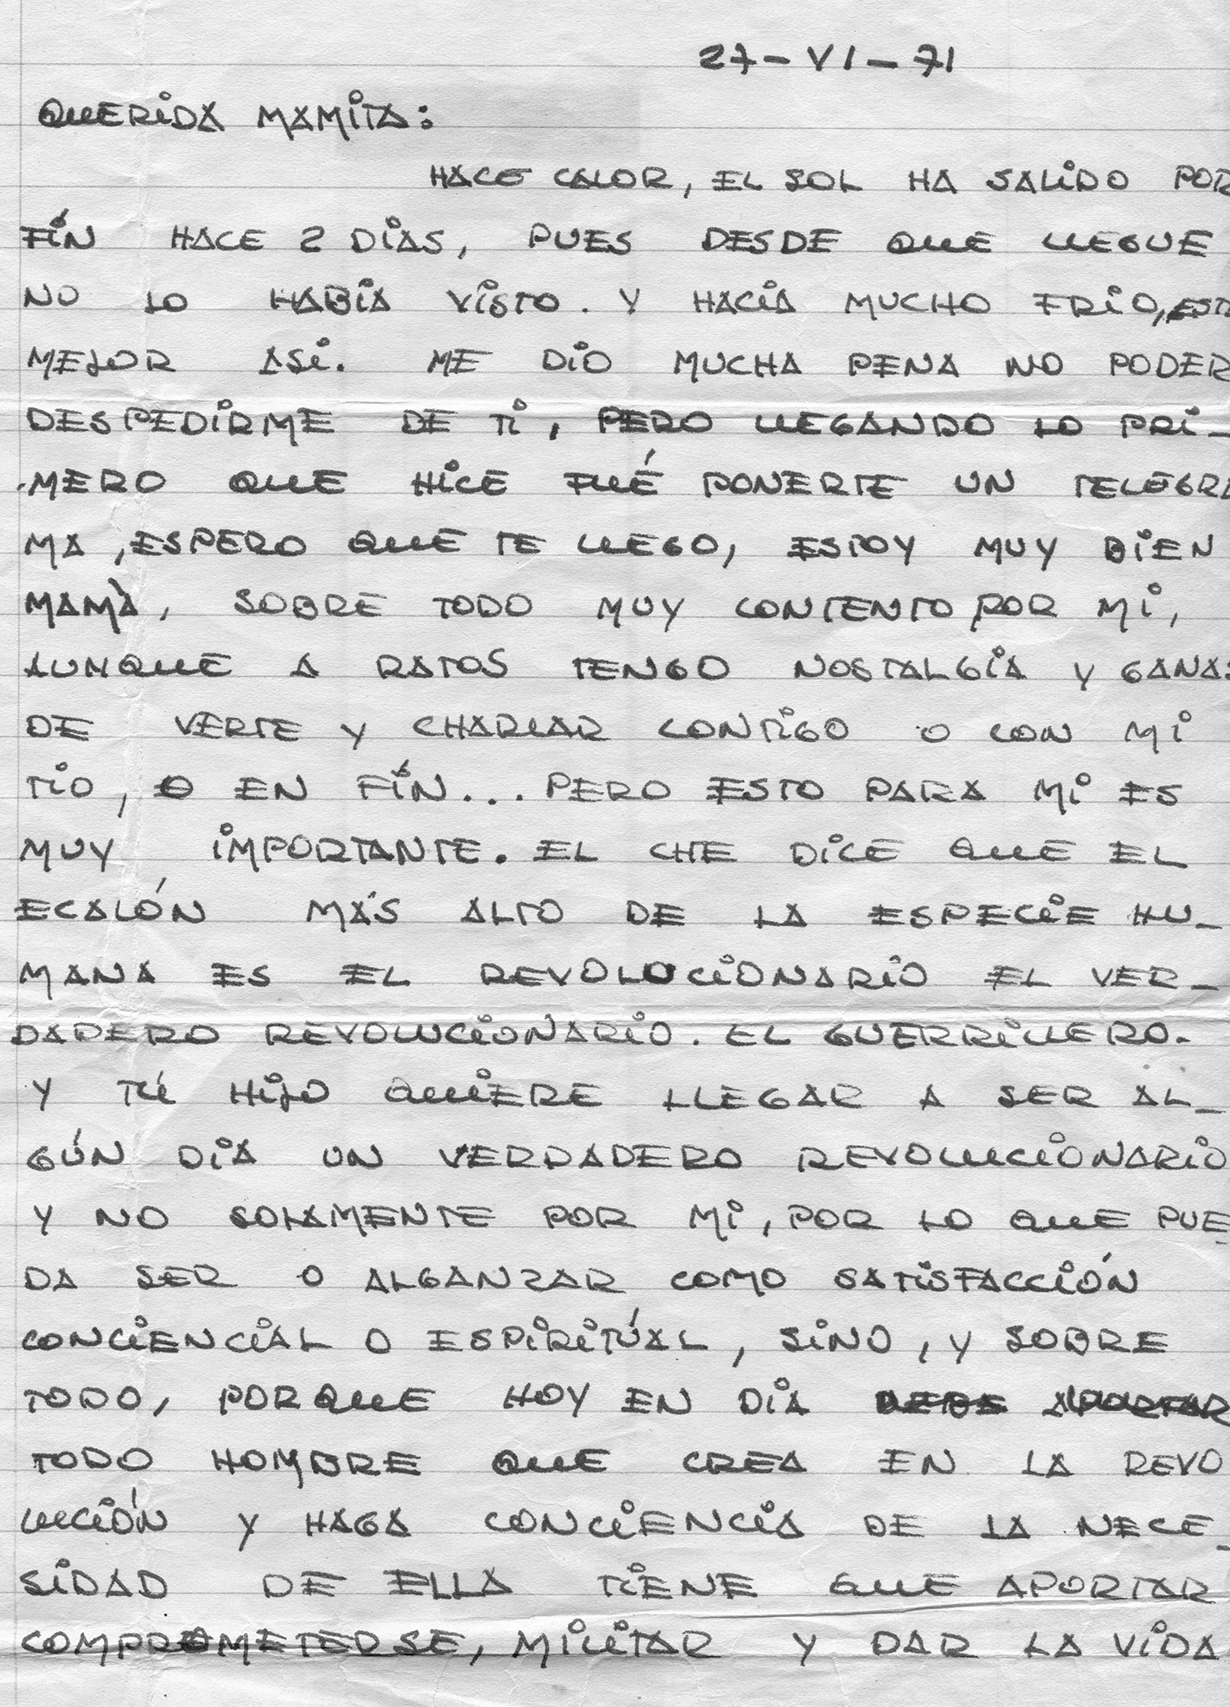 27-VI-71
QUERIDA MAMITA:
HACE CALOR, EL SOL HA SALIDO POR
FÍN HACE 2 DIAS, PUES DESDE QUE LLEGUE
NO LO HABIA VISTO. Y HACIA MUCHO FRIO, ESTA
MEJOR ASI. ME DIO MUCHA PENA NO PODER
DESPEDIRME DE TI, PERO LLEGANDO LO PRI-
MERO QUE HICE FUÉ PONERTE UN TELEGRA
MA, ESPERO QUE TE LLEGO, ESTOY MUY BIEN
MAMÀ, SOBRE TODO MUY CONTENTO POR MI,
AUNQUE A RATOS TENGO NOSTALGIA Y GANAS
DE VERTE Y CHARLAR CONTIGO O CON MI
TIO, O EN FÍN... PERO ESTO PARA MI ES
MUY IMPORTANTE. EL CHE DICE QUE EL
ECALÓN MAS ALTO DE LA ESPECIE HU-
MANA ES EL REVOLUCIONARIO EL VER-
DADERO REVOLUCIONARIO. EL GUERRILLERO.
Y TÚ HIJO QUIERE LLEGAR A SER AL-
GÚN DIA UN VERDADERO REVOLUCIONARIO
Y NO SOLAMENTE POR MI, POR LO QUE PUE
DA SER O ALGANZAR COMO SATISFACCIÓN
CONCIENCIAL O ESPIRITÚAL, SINO, Y SOBRE
TODO, PORQUE HOY EN DIA DEBE APORTAR
TODO HOMBRE QUE CREA EN LA REVO
LUCIÓN Y HAGA CONCIENCIA DE LA NECE-
SIDAD DE ELLA TIENE QUE APORTAR
COMPROMETERSE, MILITAR Y DAR LA VIDA